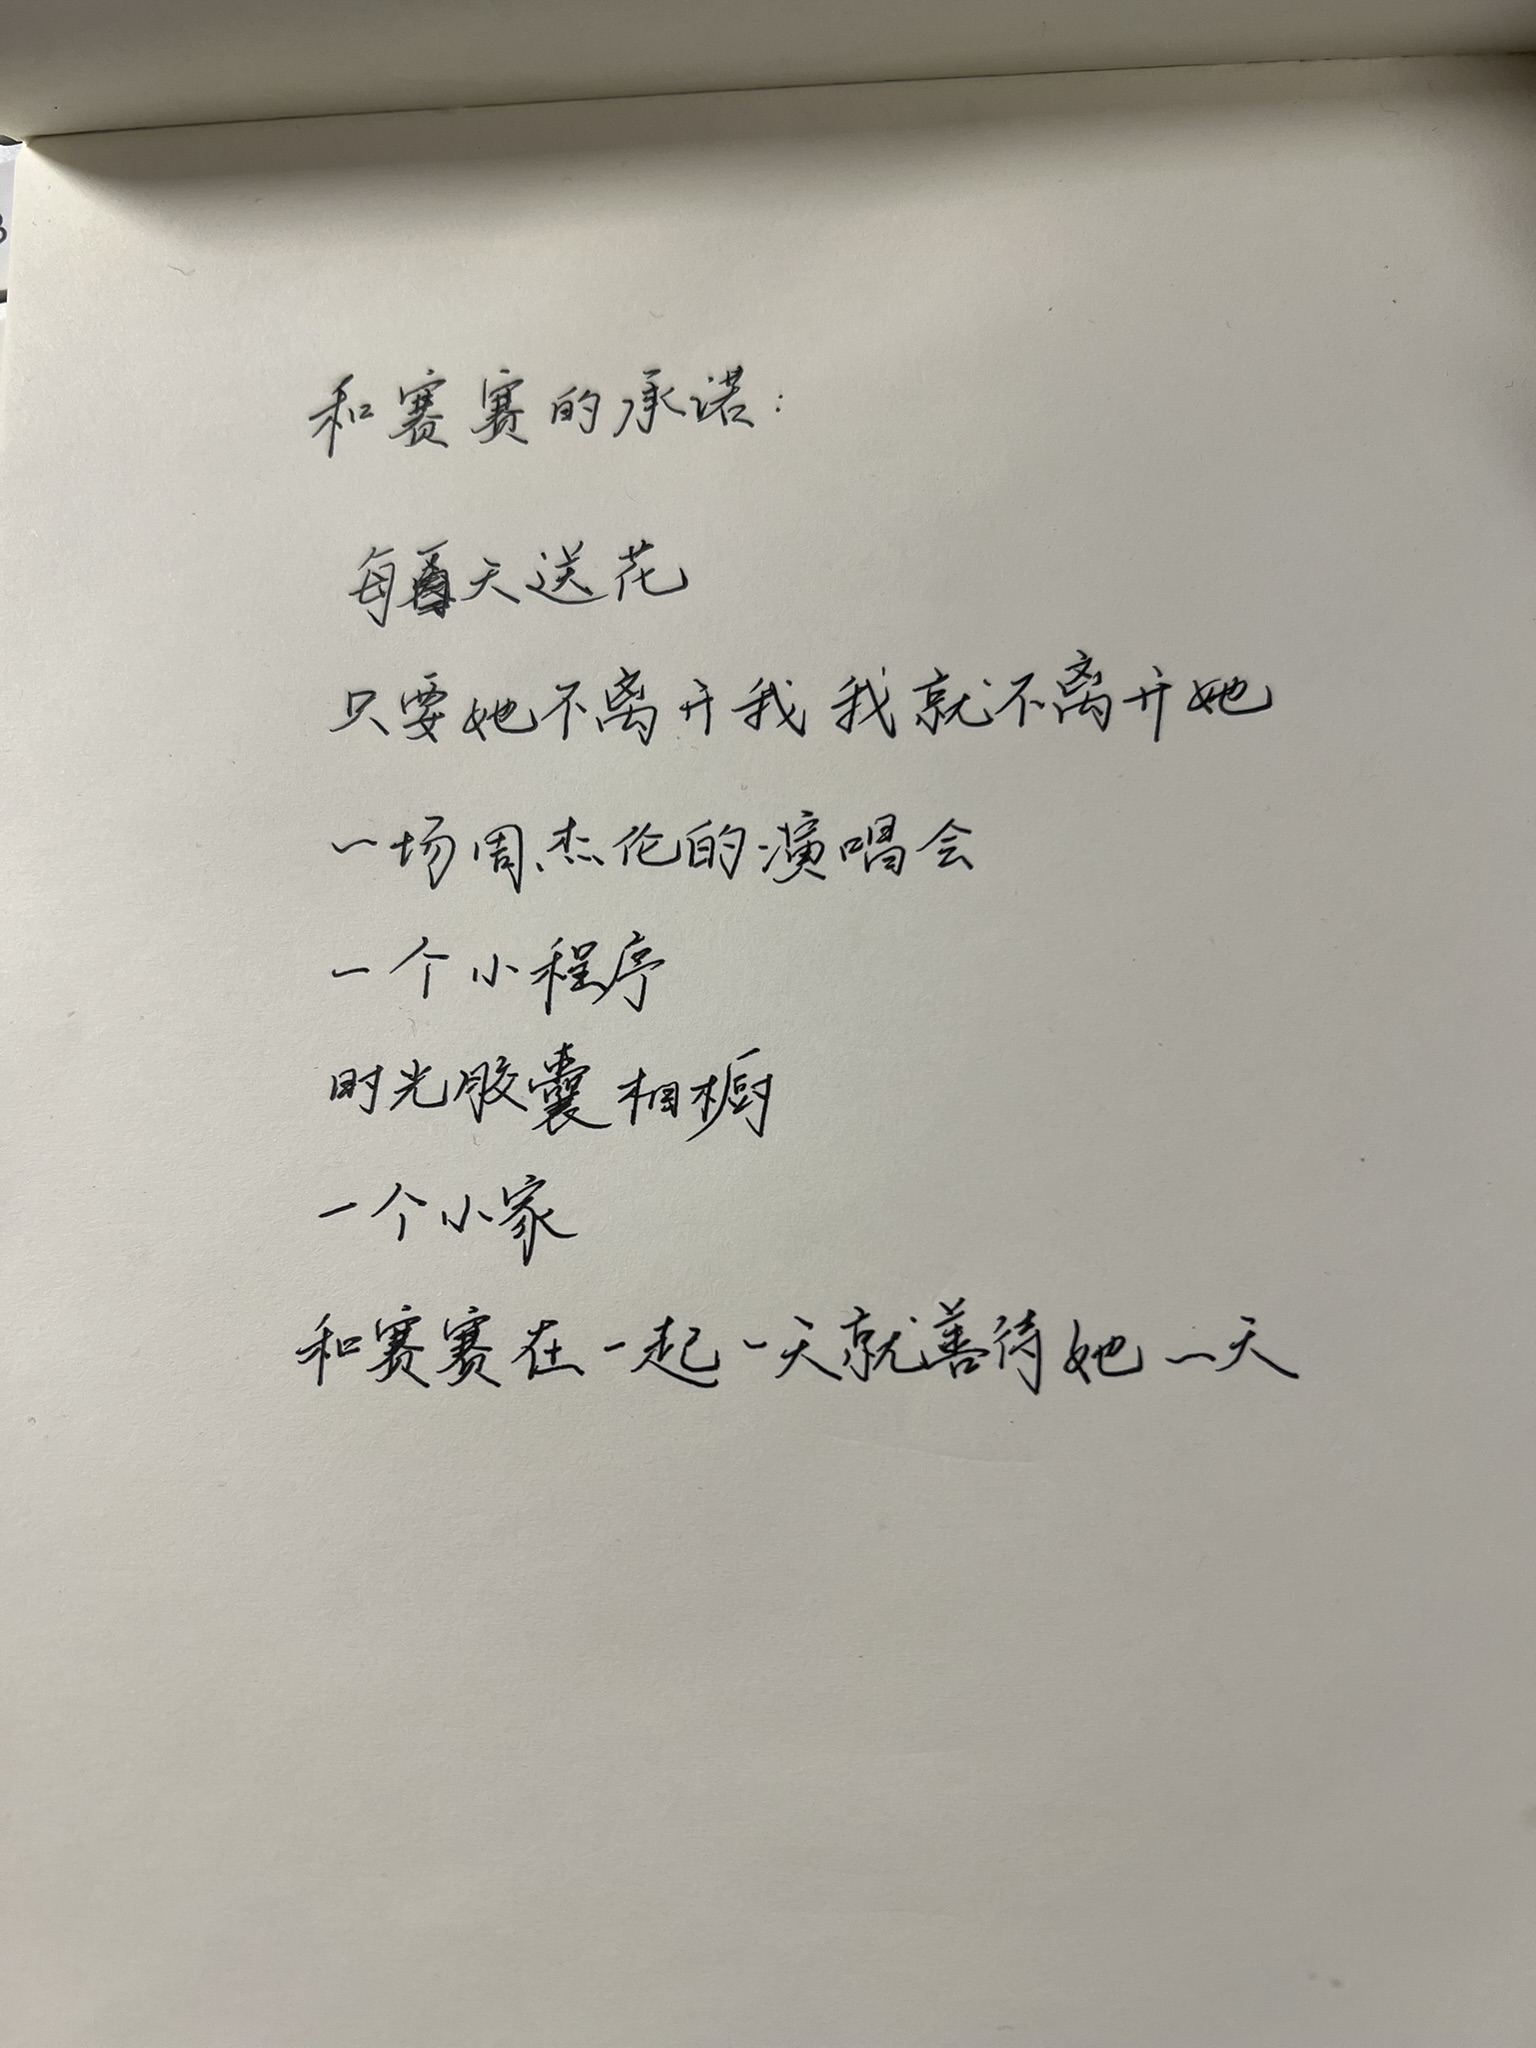 和赛赛的承诺：
每天送花
只要她不离开我我就不离开她
一场周杰伦的演唱会
一个小程序
时光胶囊相橱
一个小家
和赛赛在一起一天就善待她一天